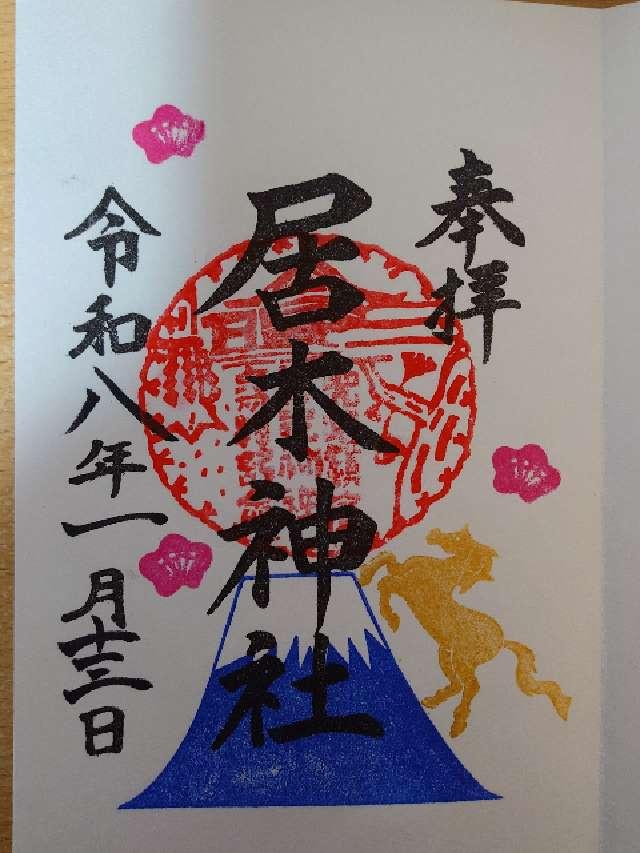 奉拝
居木神社
令和八年一月十三日